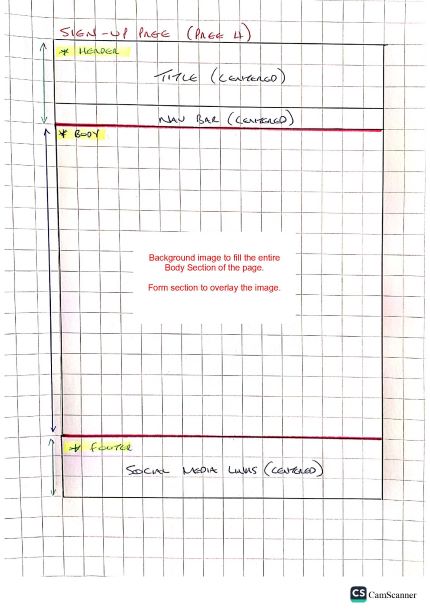 SIGN-UP PAGE (PAGE 4)
* HEADER
TITLE (CENTERED)
NAV BAR (CENTERED)
* BODY
Background image to fill the entire
Body Section of the page.
Form section to overlay the image.
* FOOTER
SOCIAL MEDIA LINKS (CENTERED)
CS CamScanner